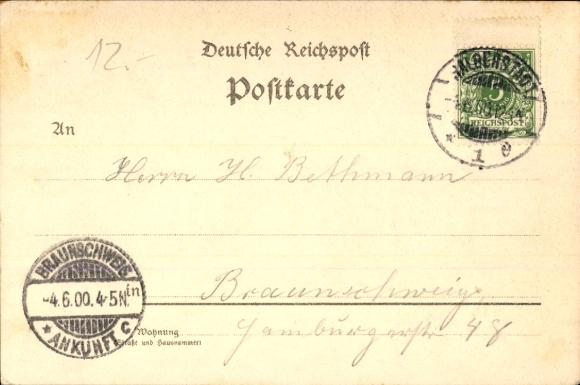 12.-
Deutsche Reichspost
Postkarte
HALBERSTADT
5
REICHSPOST
1
An
Herrn H. Bethmann
BRAUNSCHWEIG
-4.6.00.4-5N.
* ANKUNFT. C
in
Braunschweig,
Wohnung
(Straße und Hausnummer)
Hamburgerstr 48